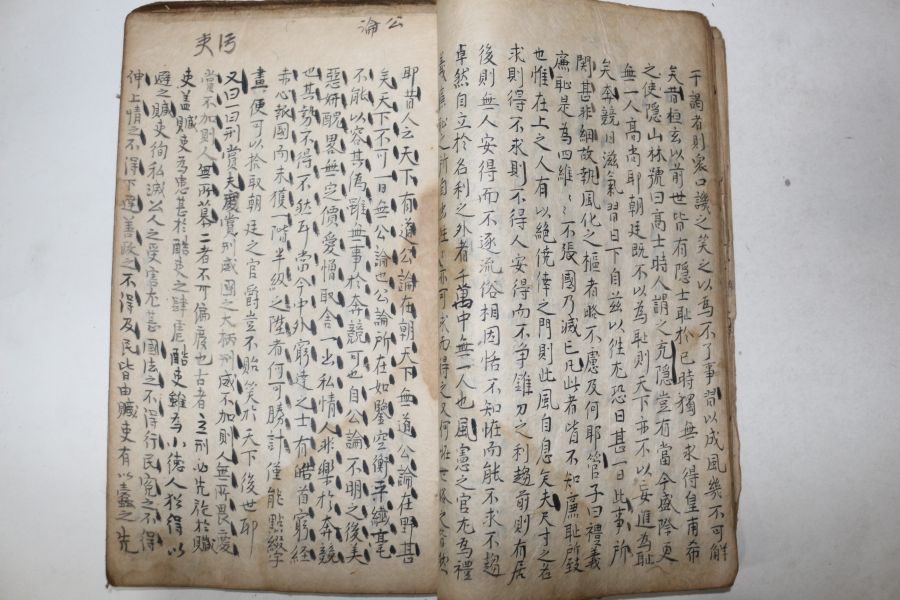 干謁者則衆口譏之笑之以為不了事習以成風幾不可解
矣昔桓玄以前世皆有隱士耻於己時獨無求得皇甫希
之使隱山林號曰高士時人謂之充隱豈有當今盛際更
無一人高尚耶朝廷既不以為耻則天下亦不以妄進為耻
矣奔競日滋氣習日下自玆以徃尤恐日甚一日此事所
関甚非細故執風化之樞者略不慮及何耶管子曰禮義
廉耻是為四維〻不張國乃滅亡凡此者皆不知廉耻所致
也惟在上之人有以絶僥倖之門則此風自息矣夫尺寸之名
求則得不求則不得人安得而不爭錐刀之利趨前則有居
後則無人安得而不逐流俗相因恬不知恠而能不求不趨
卓然自立於名利之外者千萬中無一人也風憲之官尤為禮
公論
耶昔人之天下有道公論在朝天下無道公論在野甚
矣天下不可一日無公論也公論所在如鑒空衡平纎毫
不能以容其偽雖無事於奔競可也自公論不明之後美
惡姸醜畧無定價愛憎取舍一出私情人非樂於奔競
也其勢不得不然耳當今中外窮達之士有皓首窮經
赤心報國而未獲一階半級之陞者何可勝計僅能點綴字
畫便可以拾取朝廷之官爵豈不貽笑於天下後世耶
污吏
又曰一曰刑賞夫慶賞刑威國之大柄刑威不加則人無所畏愛
賞不加則人無所慕二者不可偏廢也古者之刑必先於贓
吏盖贓吏為患甚於酷吏之肆虐酷吏雖為小德人猶得以
避之贓吏徇私滅以人之受害尤甚國法之不得行民寃之不得
伸上情之不得下達善政之不得及民皆由贓吏有以蠹之先